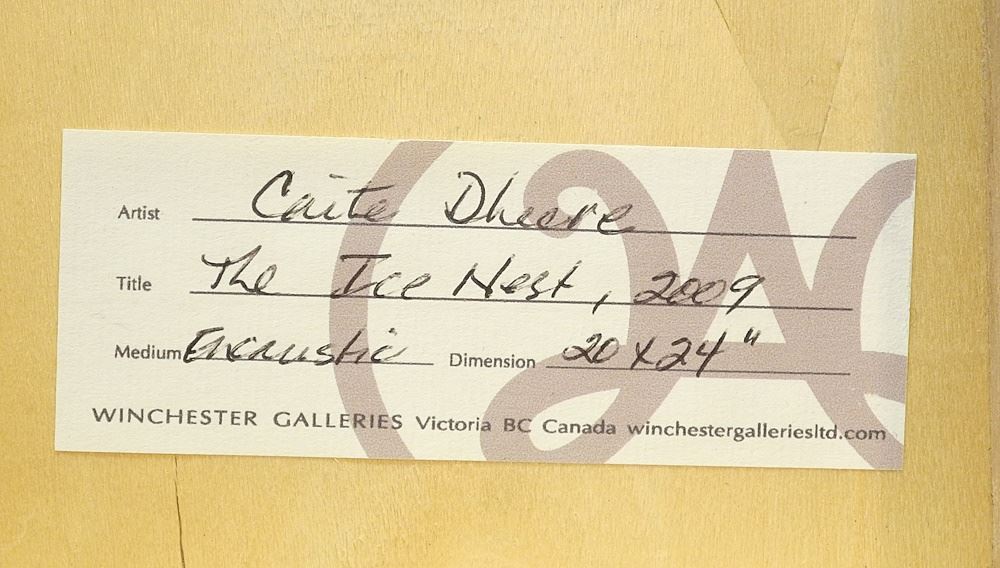 Artist Caite Dheere
Title The Ice Nest, 2009
Medium Encaustic Dimension 20 x 24"
WINCHESTER GALLERIES Victoria BC Canada winchestergalleriesltd.com